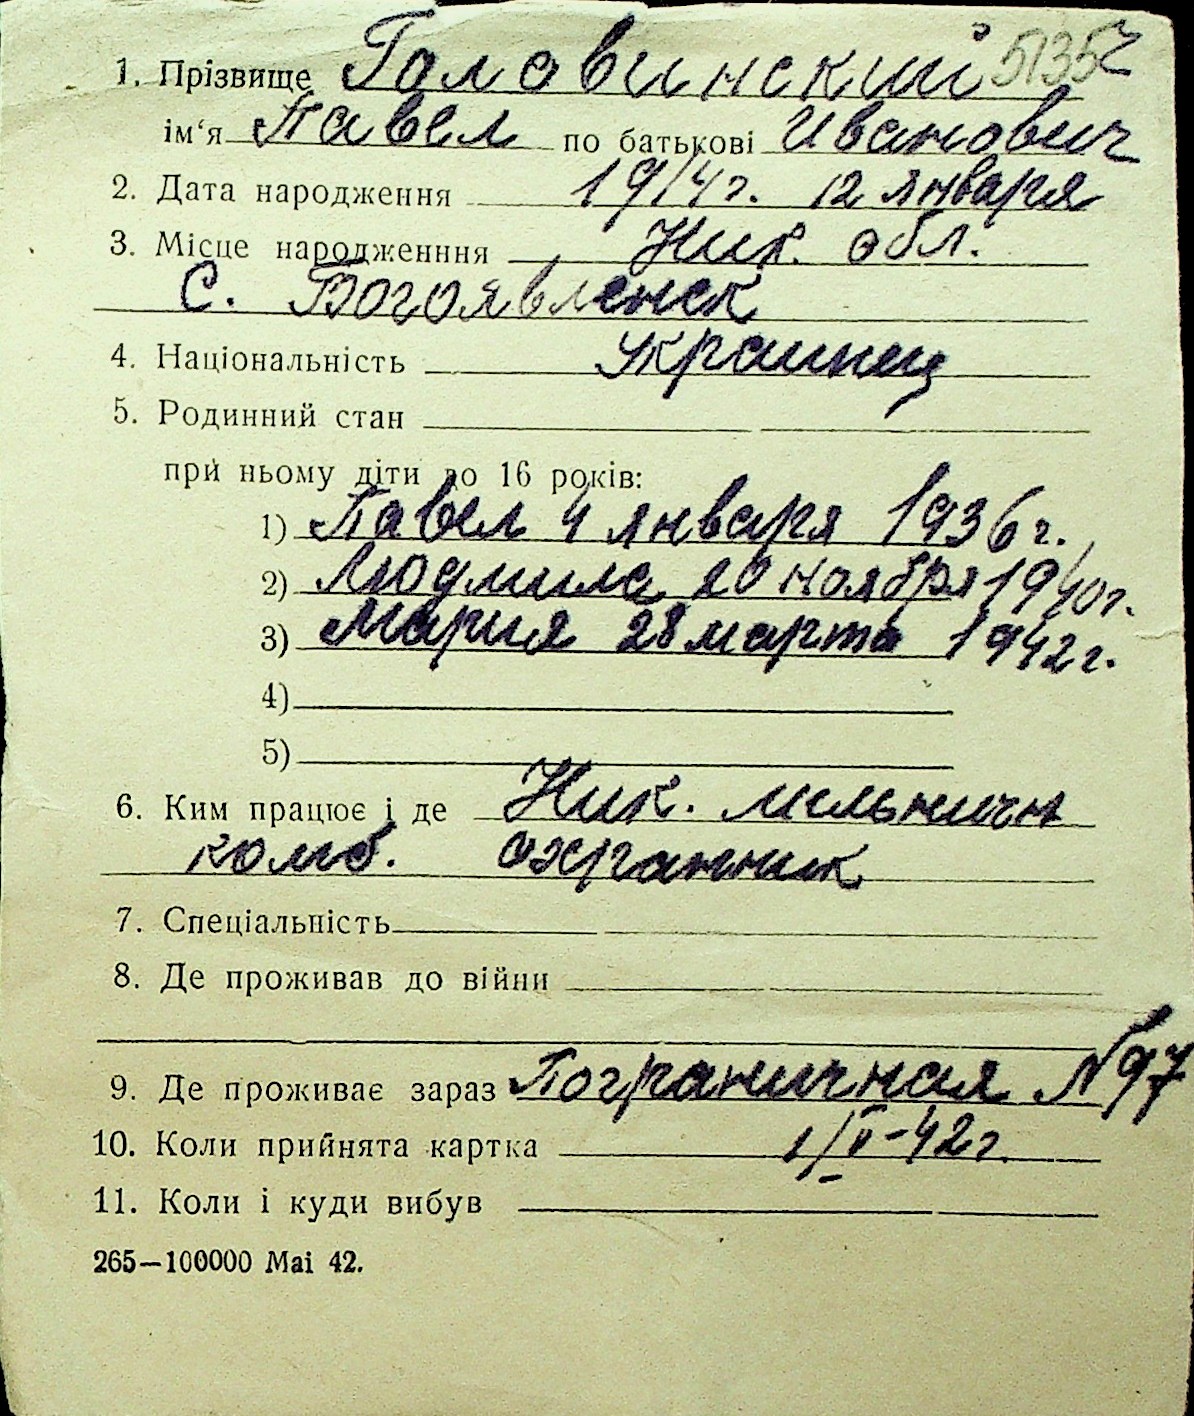 1. Прізвище Головинский 5135
ім‘я Павел по батькові Иванович
2. Дата народження 1914 г. 12 января
3. Місце народженння Ник. обл.
С. Богоявленск
4. Національність Украинец
5. Родинний стан
при ньому діти до 16 років:
1) Павел 4 января 1936 г.
2) Людмила 20 ноября 1940 г.
3) Мария 28 марта 1942 г.
4)
5)
6. Ким працює і де Ник. мельничн
комб. охранник
7. Спеціальність
8. Де проживав до війни
9. Де проживає зараз Пограничная № 97
10. Коли прийнята картка 1/VI-42 г.
11. Коли і куди вибув
265—100000 Mai 42.